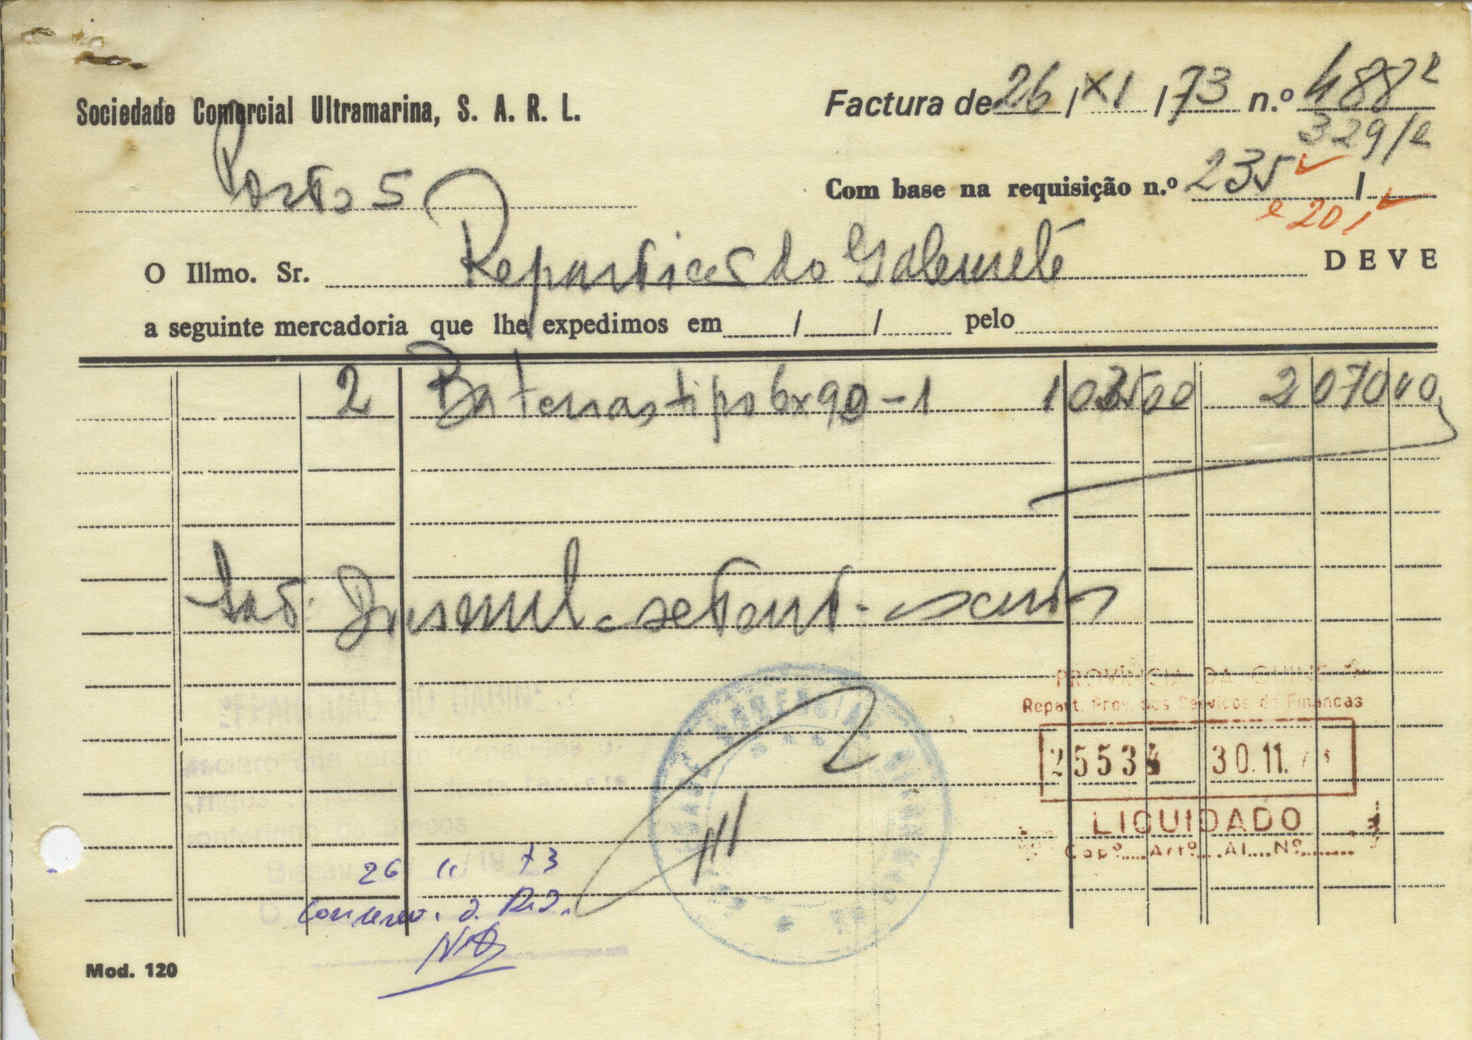 Sociedade Comercial Ultramarina, S. A. R. L.
Factura de 26 / XI / 73 n.º 488 2
329/2
Posto 5
Com base na requisição n.º 235 /
e 201
O Illmo. Sr. Repartição do Gabinete DEVE
a seguinte mercadoria que lhe expedimos em / / pelo
2 Baterias tipo 6x90-1 1 035 00 2 070 00
São: Dois mil e setenta escudos
PROVÍNCIA DA GUINÉ
Repart. Prov. dos Serviços de Finanças
25534 30.11.73
LIQUIDADO
Cap.º Art.º Al. N.º
26 11 73
Mod. 120